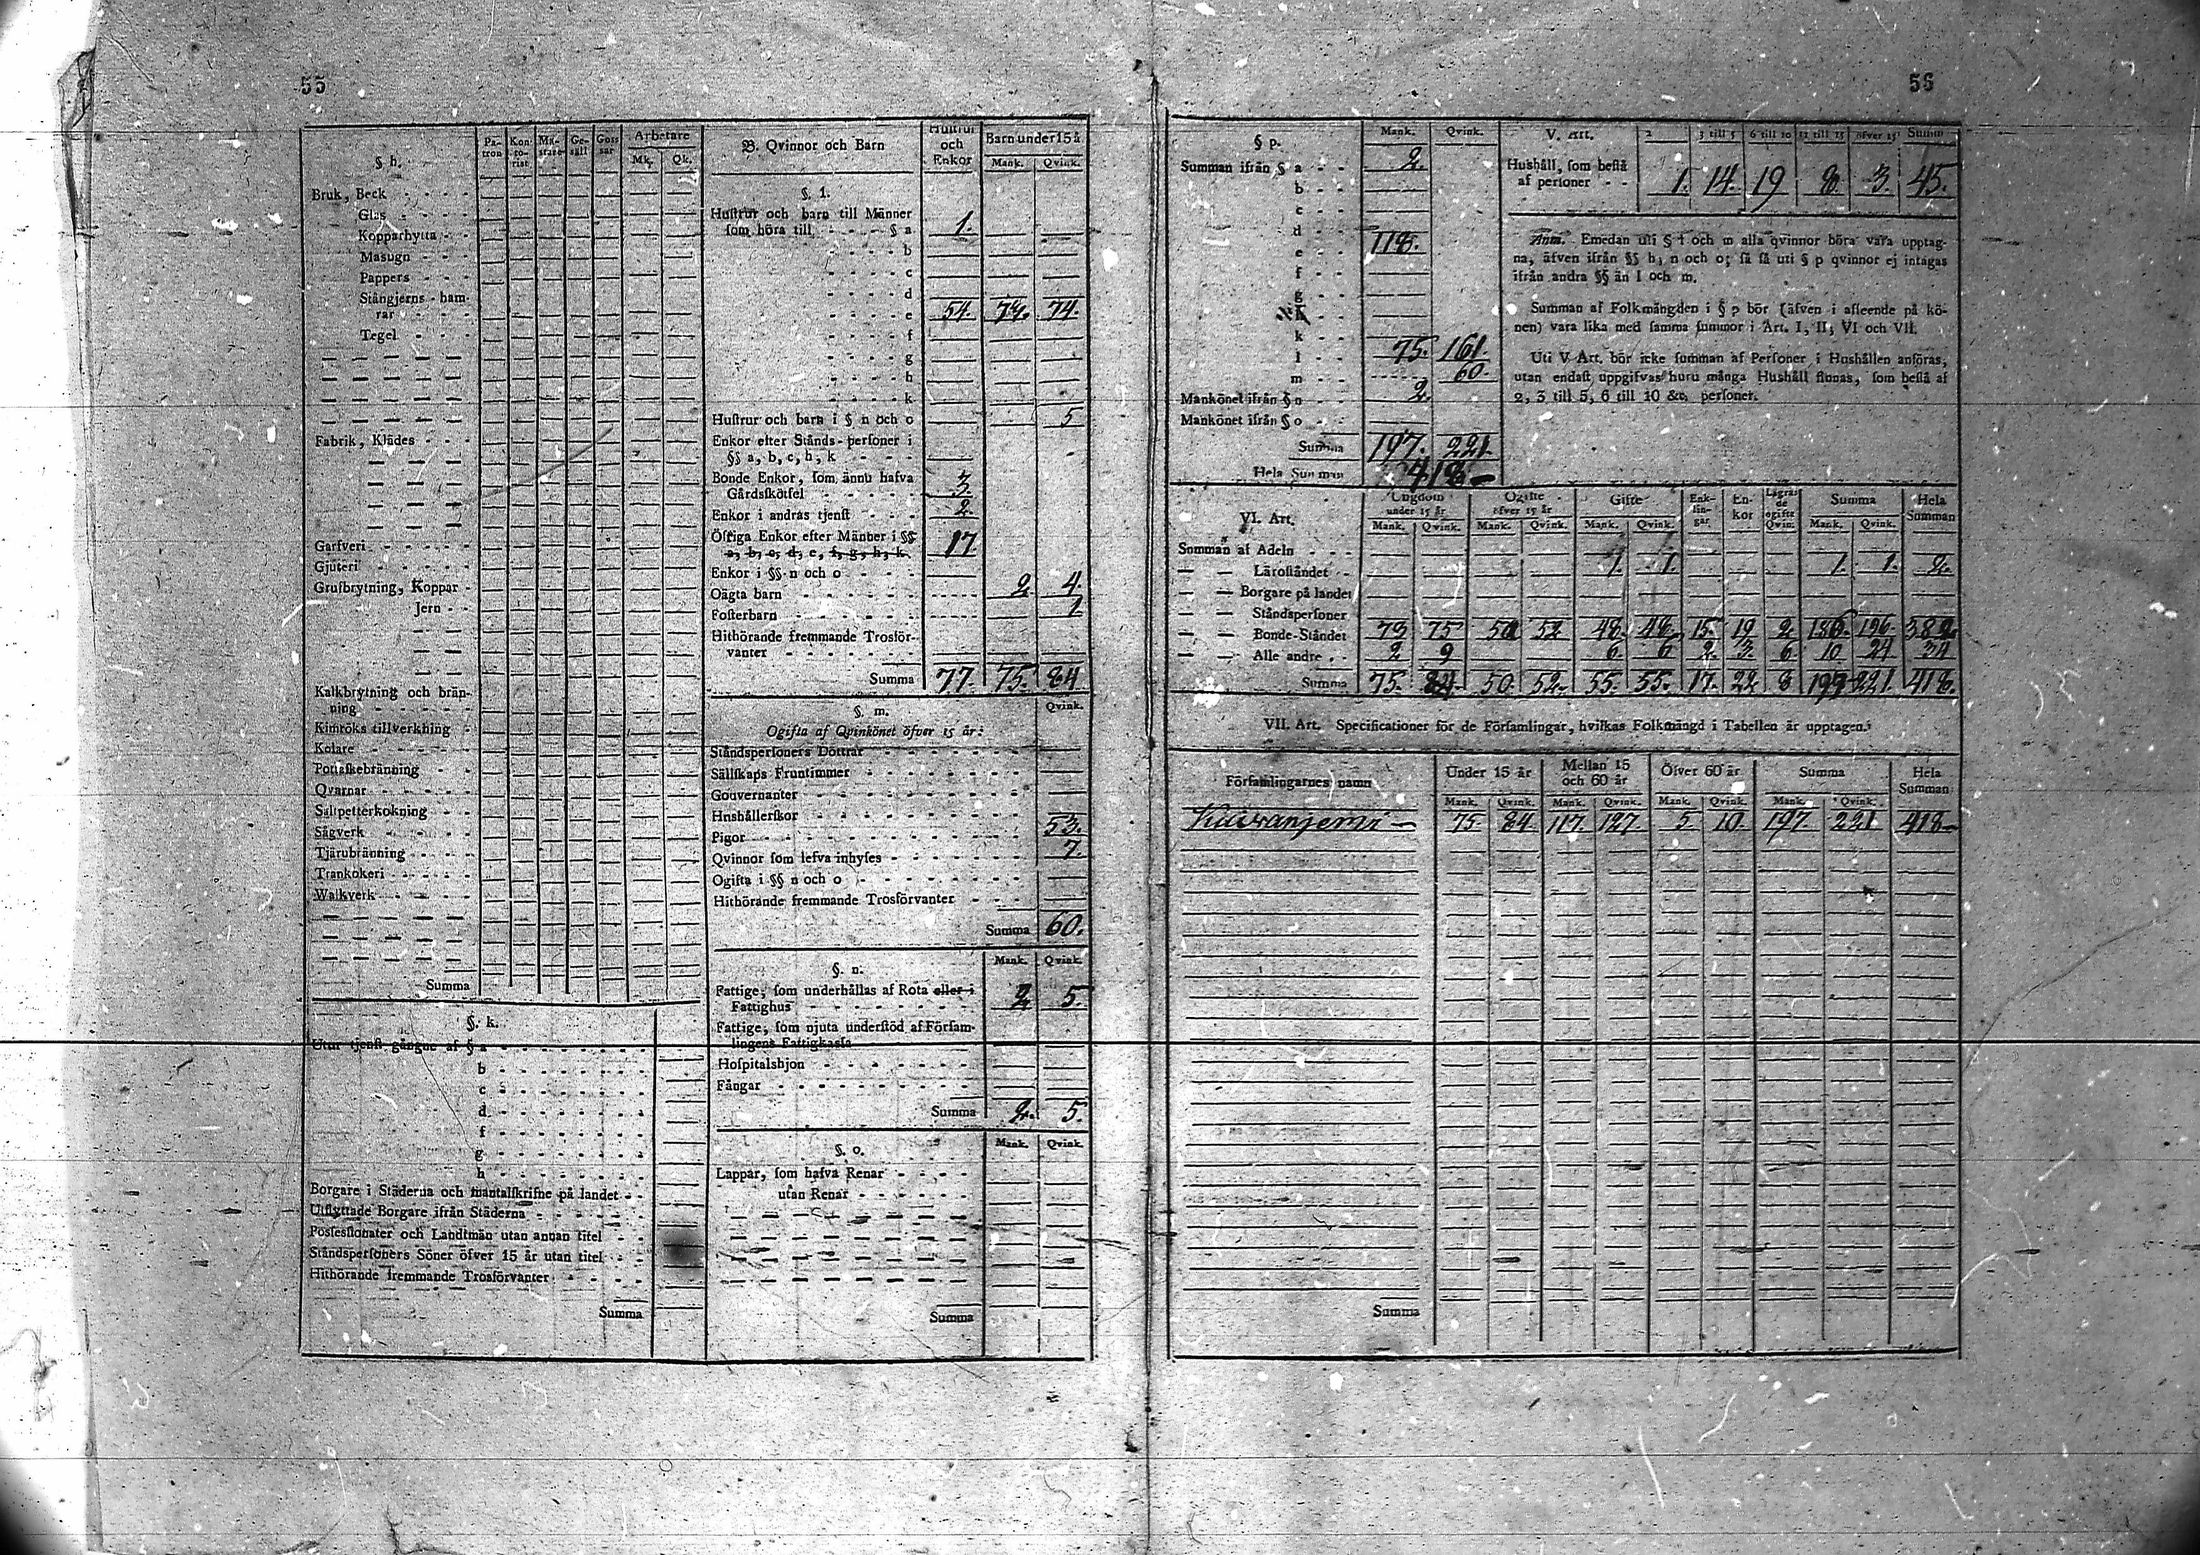 55
§ h.
Pa-tron
Kon-to-rist
Mä-stare
Ge-säll
Gos-sar
Arbetare
Mk. Qk.
Bruk, Beck
Glas
Kopparhytta
Masugn
Pappers
Stångjerns-ham-
rar
Tegel
Fabrik, Klädes
Garfveri
Gjuteri
Grufbrytning, Koppar
Jern
Kalkbrytning och brän-
ning
Kimröks tillverkning
Kolare
Pottaskebränning
Qvarnar
Saltpetterkokning
Sågverk
Tjärubränning
Trankokeri
Walkverk
Summa
§. k.
Utur tjenst gångne af § a
b
c
d
f
g
h
Borgare i Städerna och mantalskrifne på landet
Utflyttade Borgare ifrån Städerna
Possessionater och Landtmän utan annan titel
Ståndspersoners Söner öfver 15 år utan titel
Hithörande fremmande Trosförvanter
Summa
B. Qvinnor och Barn
Hustrur och Enkor
Barn under 15 å
Mank. Qvink.
§. l.
Hustrur och barn till Männer
som höra till § a 1.
b
c
d
e 54. 74. 74.
f
g
h
k
Hustrur och barn i § n och o 5
Enkor efter Stånds-personer i
§§ a, b, c, h, k
Bonde Enkor, som ännu hafva
Gårdsskötsel 3
Enkor i andras tjenst 2.
Öfriga Enkor efter Männer i §§
a, b, c, d, e, f, g, h, k 17.
Enkor i §§ n och o
Oägta barn 2 4.
Fosterbarn 1
Hithörande fremmande Trosför-
vanter
Summa 77. 75. 84
§. m.
Qvink.
Ogifta af Qvinkönet öfver 15 år:
Ståndspersoners Döttrar
Sällskaps Fruntimmer
Gouvernanter
Hushållerskor
Pigor 53.
Qvinnor som lefva inhyses 7.
Ogifta i §§ n och o
Hithörande fremmande Trosförvanter
Summa 60.
§. n.
Mank. Qvink.
Fattige, som underhållas af Rota eller i
Fattighus 2 5.
Fattige, som njuta understöd af Försam-
lingens Fattigkassa
Hospitalshjon
Fångar
Summa 2. 5.
§. o.
Mank. Qvink.
Lappar, som hafva Renar
utan Renar
Summa
56
§ p.
Mank. Qvink.
Summan ifrån § a 2.
b
c
d
e 118.
f
g
h
k
l 75. 161.
m 60.
Mankönet ifrån § n 2.
Mankönet ifrån § o
Summa 197. 221.
Hela Summan 418
V. Art.
2
3 till 5
6 till 10
11 till 15
öfver 15
Summ
Hushåll, som bestå
af personer 1. 14. 19 8. 3. 45.
Anm. Emedan uti § l och m alla qvinnor böra vara upptag-
na, äfven ifrån §§ h, n och o; så få uti § p qvinnor ej intagas
ifrån andra §§ än l och m.
Summan af Folkmängden i § p bör (äfven i afseende på kö-
nen) vara lika med samma summor i Art. I, II, VI och VII.
Uti V Art. bör icke summan af Personer i Hushållen anföras,
utan endast uppgifvas huru många Hushåll finnas, som bestå af
2, 3 till 5, 6 till 10 &c. personer.
VI. Art.
Ungdom under 15 år
Ogifte öfver 15 år
Gifte
Enk-lin-gar
En-kor
Lägra-de ogifta Qvin.
Summa
Hela Summan
Mank. Qvink. Mank. Qvink. Mank. Qvink. Mank. Qvink.
Summan af Adeln
Läroståndet 1. 1. 1. 1. 2.
Borgare på landet
Ståndspersoner
Bonde-Ståndet 73 75 50 52 48. 48. 15. 19 2 186. 196 382.
Alle andre 2 9 6 6 2. 3. 6. 10 24 34
Summa 75. 84. 50. 52. 55. 55. 17. 22 8 197 221. 418.
VII. Art. Specificationer för de Församlingar, hvilkas Folkmängd i Tabellen är upptagen.
Församlingarnes namn
Under 15 år
Mellan 15 och 60 år
Öfver 60 år
Summa
Hela Summan
Mank. Qvink. Mank. Qvink. Mank. Qvink. Mank. Qvink.
75 84 117. 127. 5. 10. 197. 221 418
Summa